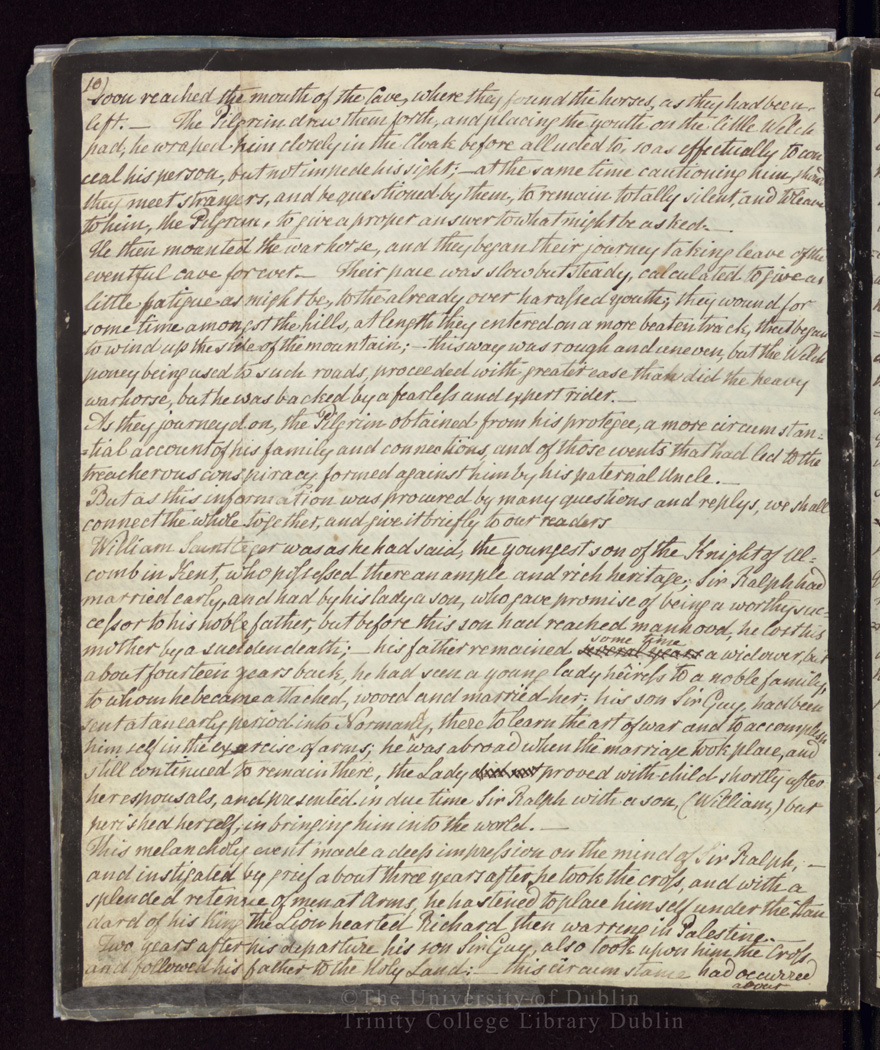 10)
soon reached the mouth of the Cave, where they found the horses, as they had been
left. — The Pilgrim drew them forth, and placing the youth on the little Welch
pad, he wraped him closely in the Cloak before alluded to, so as effectually to con
ceal his person, but not impede his sight; — at the same time cautioning him, should
they meet strangers, and be questioned by them, to remain totally silent, and to leave
to him, the Pilgrim, to give a proper answer to what might be asked. —
He then mounted the warhorse, and they began their journey taking leave of the
eventful cave for ever. — Their pace was slow but steady, calculated to give as
little fatigue as might be, to the already over harassed youth; they wound for
some time amongst the hills, at length they entered on a more beaten track, that began
to wind up the side of the mountain; — this way was rough and uneven, but the Welch
poney being used to such roads, proceeded with greater ease than did the heavy
warhorse, but he was backed by a fearless and expert rider. —
As they journeyd on, the Pilgrim obtained from his protegee, a more circumstan=
=tial account of his family and connections, and of those events that had led to the
treacherous conspiracy formed against him by his paternal Uncle. —
But as this information was procured by many questions and replys, we shall
connect the whole together, and give it briefly to our readers
William Saintleger was as he had said, the youngest son of the Knight of Ul-
comb in Kent, who possessed there an ample and rich heritage; Sir Ralph had
married early, and had by his lady a son, who gave promise of being a worthy suc-
cessor to his noble father, but before this son had reached manhood, he lost his
mother by a sudden death; — his father remained several years some time a widower, but
about fourteen years back, he had seen a young lady heiress to a noble family,
to whom he became attached, wooed and married her; his son Sir Guy, had been
sent at an early period into Normandy, there to learn the art of war and to accomplish
himself in the exercise of arms; he was abroad when the marriage took place, and
still continued to remain there, the Lady proved with child shortly after
her espousals, and presented in due time Sir Ralph with a son, (William,) but
perished herself, in bringing him into the world. —
This melancholy event made a deep impression on the mind of Sir Ralph, —
and instigated by grief about three years after, he took the cross, and with a
splended retenue of men at Arms, he hastened to place himself under the Stan
dard of his King the Lion hearted Richard then warring in Palestine. —
Two years after his departure his son Sir Guy, also took upon him the Cross,
and followed his father to the Holy Land: — this circumstance had occurred
about
© The University of Dublin
Trinity College Library Dublin